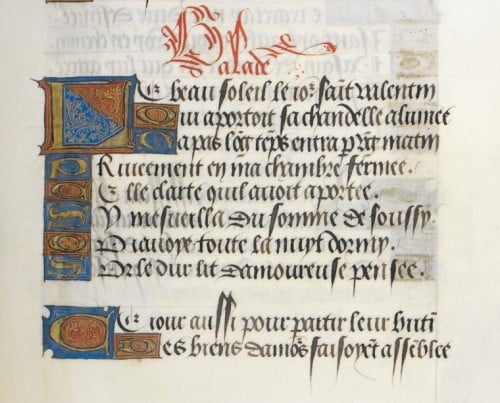 Balade
LE beau soleil le ior sai̅t valentin
QUi aportoit sa chandelle alumee
NA pas lo̅g te̅ps entra p vng matin
PRiueement en ma chambre fermee.
CElle clarte quil auoit aportee.
SY mesueilla du somme de soussy.
OU iauoye toute la nuyt dormy.
SOr le dur lit damoureuse pensee.
CE iour aussi pour partir leur buti̅
LEs biens damors faisoye̅t asse̅blee